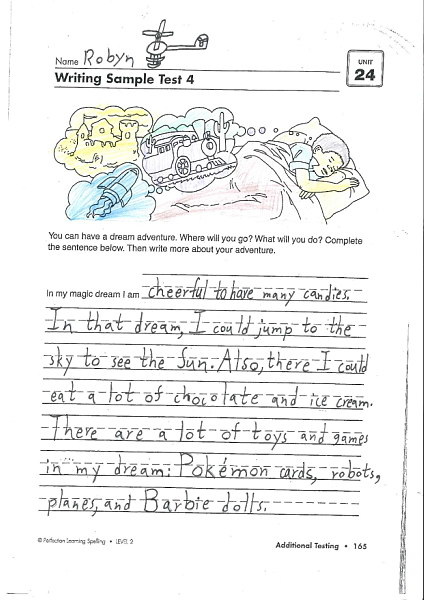 Name Robyn
UNIT
24
Writing Sample Test 4
You can have a dream adventure. Where will you go? What will you do? Complete
the sentence below. Then write more about your adventure.
In my magic dream I am cheerful to have many candies.
In that dream, I could jump to the
sky to see the Sun. Also, there I could
eat a lot of chocolate and ice cream.
There are a lot of toys and games
in my dream: Pokémon cards, robots,
planes, and Barbie dolls.
© Perfection Learning Spelling • LEVEL 2
Additional Testing • 165